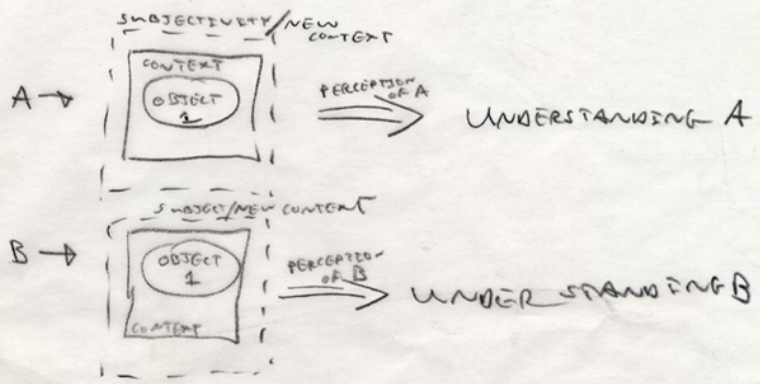 SUBJECTIVITY/NEW
CONTEXT
CONTEXT
A → OBJECT
1
PERCEPTION
OF A
UNDERSTANDING A
SUBJECT/NEW CONTEXT
B → OBJECT
1
CONTEXT
PERCEPTION
OF B
UNDERSTANDING B